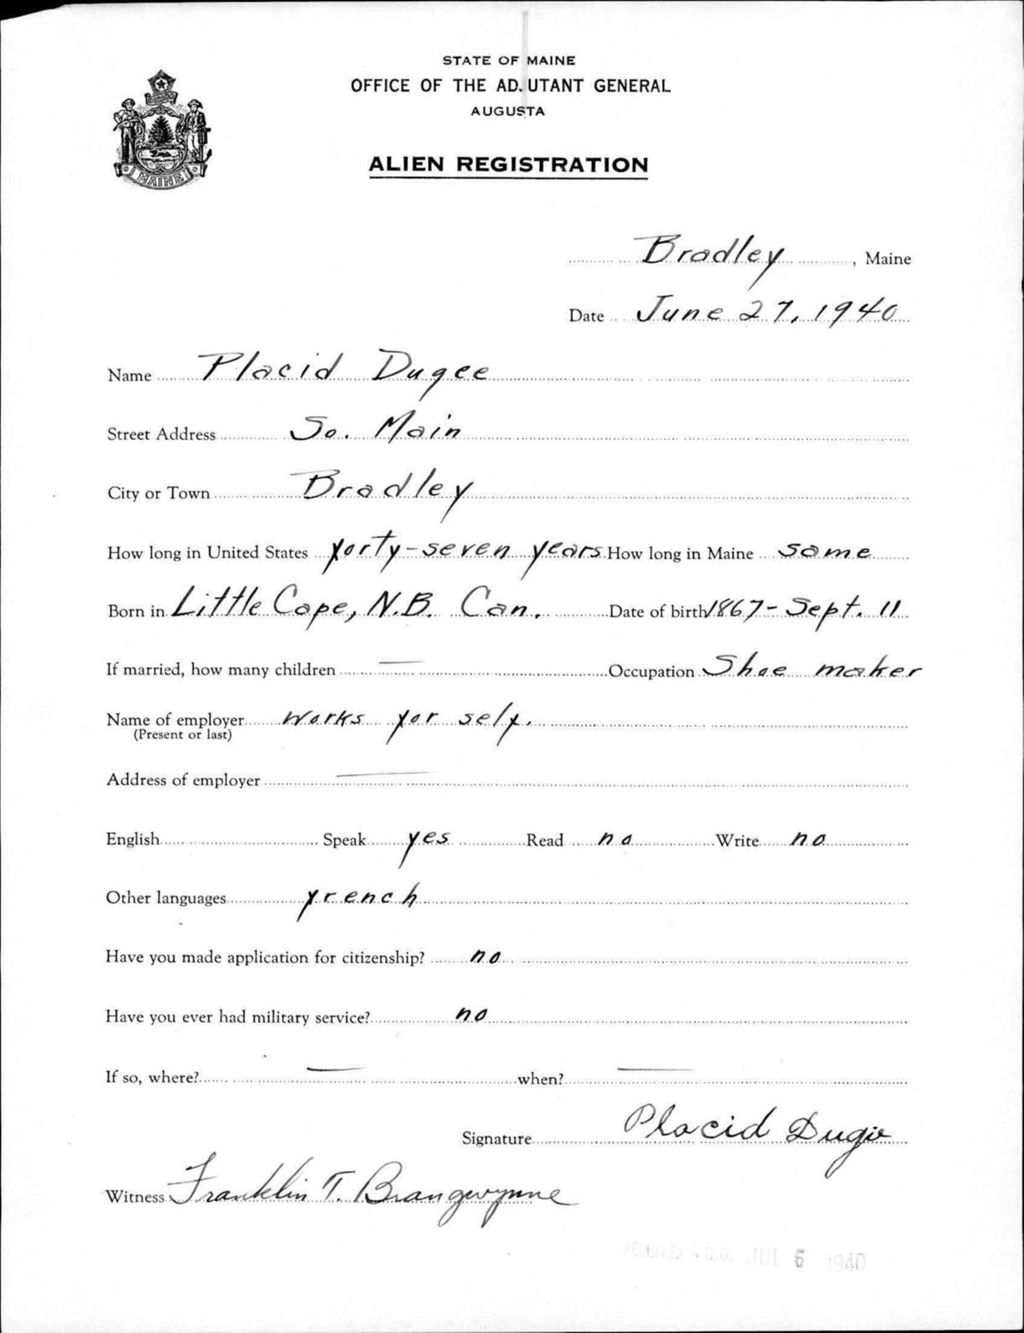 STATE OF MAINE
OFFICE OF THE ADJUTANT GENERAL
AUGUSTA
ALIEN REGISTRATION
MAINE
Bradley, Maine
Date June 27, 1940
Name Placid Dugee
Street Address So. Main
City or Town Bradley
How long in United States forty-seven years How long in Maine same
Born in Little Cape, N.B. Can. Date of birth 1867- Sept. 11
If married, how many children — Occupation Shoe maker
Name of employer works for self.
(Present or last)
Address of employer —
English Speak yes Read no Write no
Other languages french
Have you made application for citizenship? no
Have you ever had military service? no
If so, where? — when? —
Signature Placid Dugie
Witness Franklin T. Brangwynne
JUL 6 1940